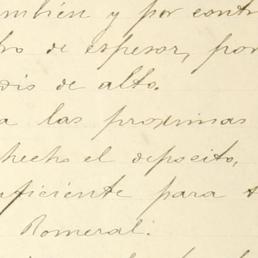 también y por contr
ro de espesor, por
dio de alto.
a las proximas
hecho el deposito,
uficiente para t
Romeral.